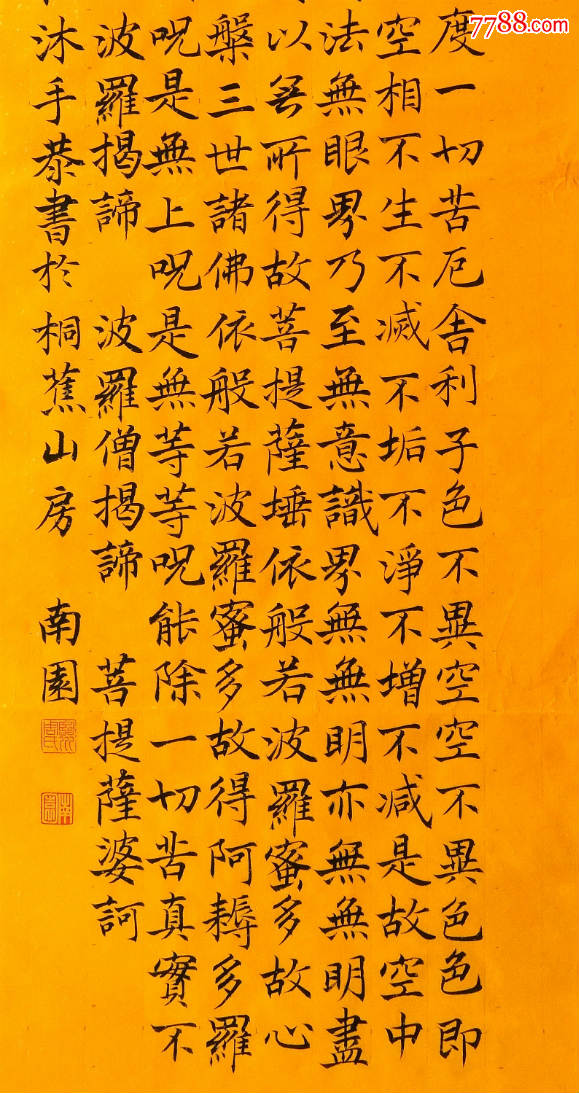 7788.com
度一切苦厄舍利子色不異空空不異色色即
空相不生不滅不垢不淨不增不減是故空中
法無眼界乃至無意識界無無明亦無無明盡
以無所得故菩提薩埵依般若波羅蜜多故心
槃三世諸佛依般若波羅蜜多故得阿耨多羅
呪是無上呪是無等等呪能除一切苦真實不
波羅揭諦 波羅僧揭諦 菩提薩婆訶
沐手恭書於桐蕉山房 南園